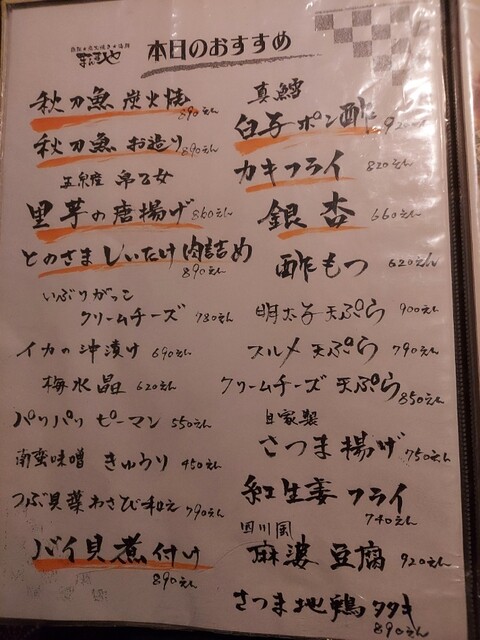 本日のおすすめ
秋刀魚 炭火焼 890えん
秋刀魚 お造り 890えん
五泉産 帛乙女
里芋の唐揚げ 860えん
とのさましいたけ肉詰め
890えん
いぶりがっこ
クリームチーズ 780えん
イカの沖漬け 690えん
梅水晶 620えん
パリパリ ピーマン 550えん
南蛮味噌 きゅうり 450えん
つぶ貝葉わさび和え 790えん
バイ貝煮付け
890えん
真鱈
白子ポン酢 920えん
カキフライ 820えん
銀杏 660えん
酢もつ 620えん
明太子天ぷら 900えん
スルメ天ぷら 790えん
クリームチーズ天ぷら 850えん
自家製
さつま揚げ 750えん
紅生姜フライ
740えん
四川風
麻婆豆腐 920えん
さつま地鶏タタキ
890えん